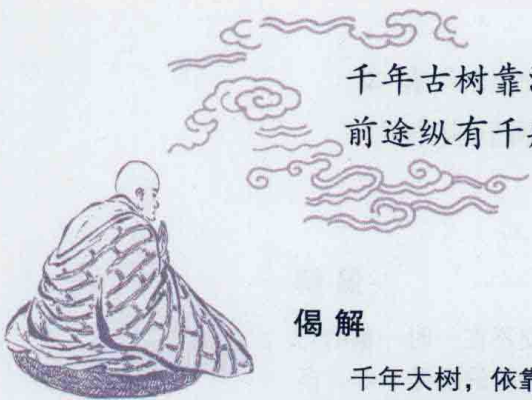 千年古树靠
前途纵有千
偈解
千年大树，依靠